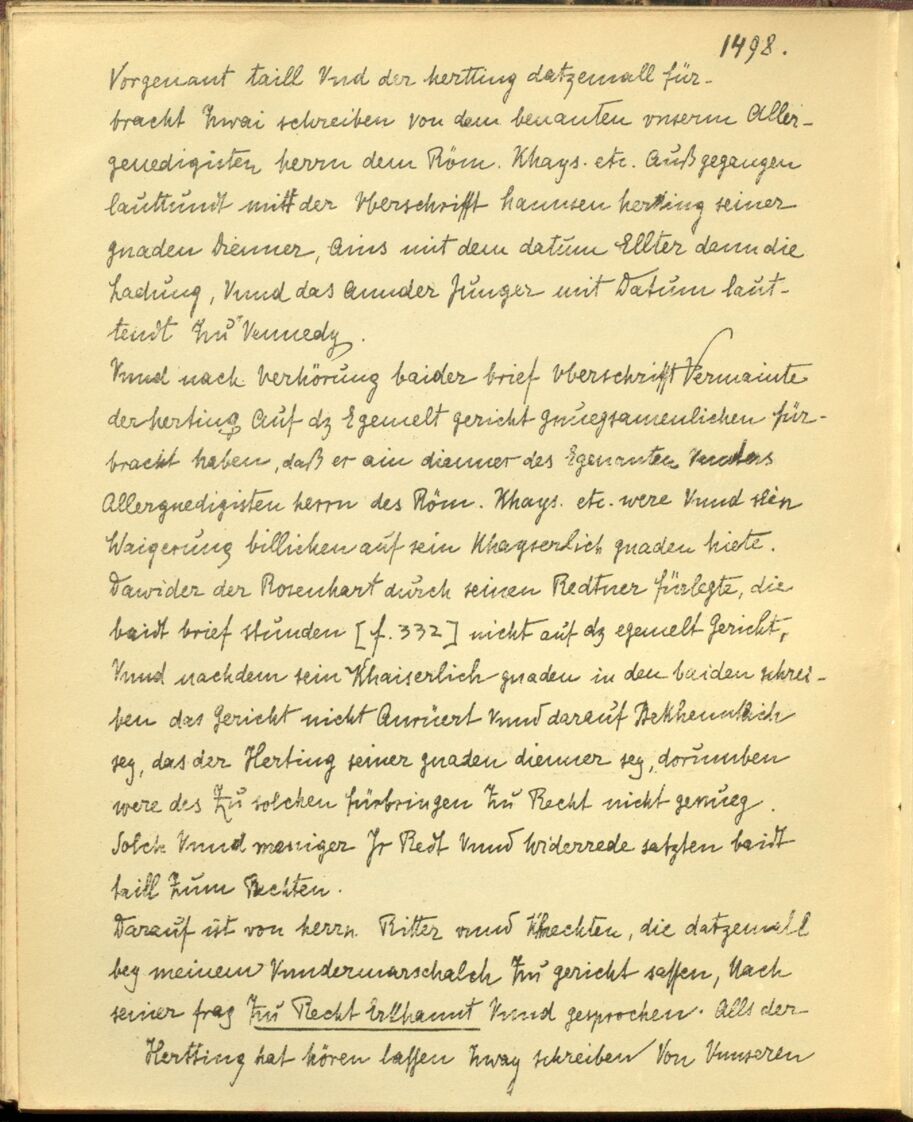 1498.
Vorgenant taill Vnd der hertting datzemall für-
bracht Zwai schreiben von dem benanten vnserm Aller-
genedigisten herrn dem Röm. Khays. etc. Außgegangen
lauttundt mitt der Vberschrifft hannsen herting seiner
gnaden Dienner, Ains mit dem datum Ellter dann die
Ladung, Vnnd das Annder Junger mit Datum laut-
tendt Zu Vennedy.
Vnnd nach Verhörung baider brief vberschrifft Vermainte
der herting Auf dz Egemelt gericht gnuegsamenlichen für-
bracht haben, daß er ain dienner des Egenanten
Allergnedigisten herrn des Röm. Khays. etc. were Vnnd sein
Waigerung billichen auf sein Khayserlich gnaden hiete.
Dawider der Rosenhart durch seinen Redtner fürlegte, die
baidt brief stunden [f. 332] nicht auf dz egemelt Gericht,
Vnnd nachdem sein Khaiserlich gnaden in den baiden schrei-
ben das Gericht nicht Anrüert vnnd darauf Bekhenntlich
sey, das der Herting seiner gnaden dienner sey, dorumben
were des Zu solchen fürbringen Zu Recht nicht genueg.
Solch Vnnd meniger Jr Redt Vnnd Widerrede satzten baidt
taill Zum Rechten.
Darauf ist von herrn Ritter vnnd Khnechten, die datzemall
bey meinem Vnndermarschalch Zu gericht sassen, Nach
seiner frag Zu Recht Erkhannt Vnnd gesprochen. Alls der
Hertting hat hören lassen Zway schreiben Von Vnnseren